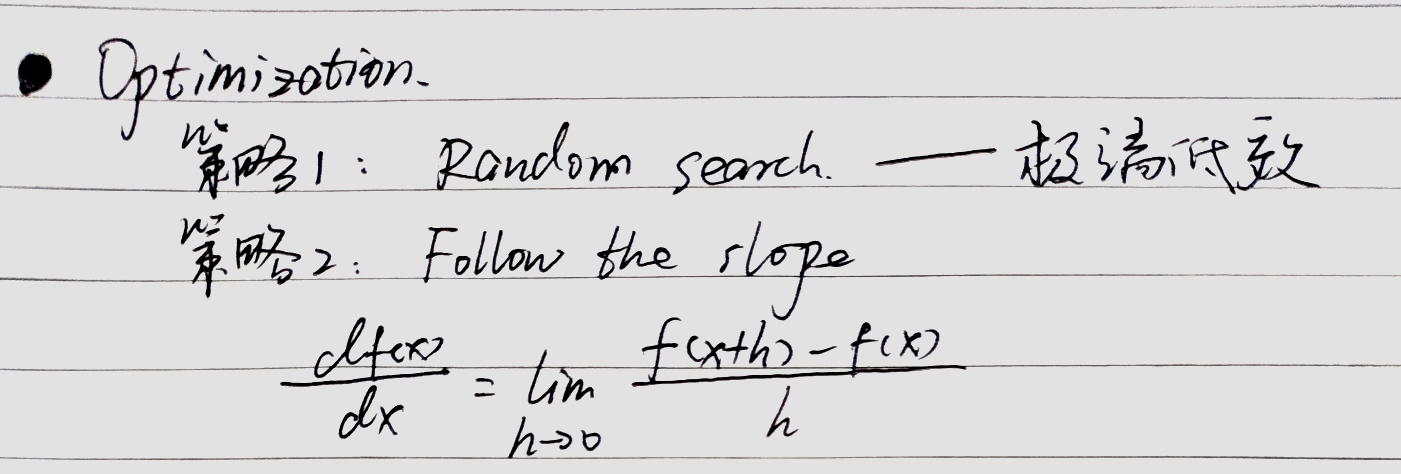 ● Optimization.
策略1: Random search. —— 极端低效
策略2: Follow the slope
df(x)/dx = lim h→0 f(x+h)-f(x)/h